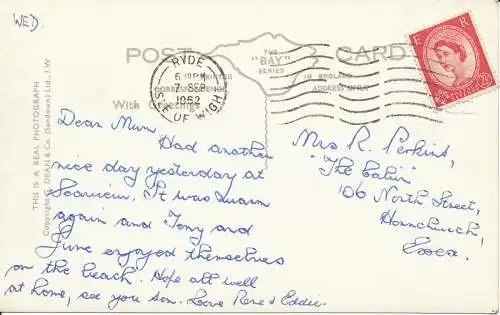 WED.
POST CARD
THE
"BAY"
SERIES
PRINTED
IN ENGLAND
CORRESPONDENCE
ADDRESS ONLY
With Greetings
RYDE
7 SEP
1962
ISLE OF WIGHT
E R
THIS IS A REAL PHOTOGRAPH
Copyright G. DEAN & Co. (Sandown) Ltd., I.W
Dear Mum, Had another
nice day yesterday at
Seaview. It was warm
again and Tony and
June enjoyed themselves
on the beach. Hope all well
at home, see you son. Love Rene & Eddie.
Mrs R. Perkins,
"The Cabin"
106 North Street,
Hornchurch,
Essex.